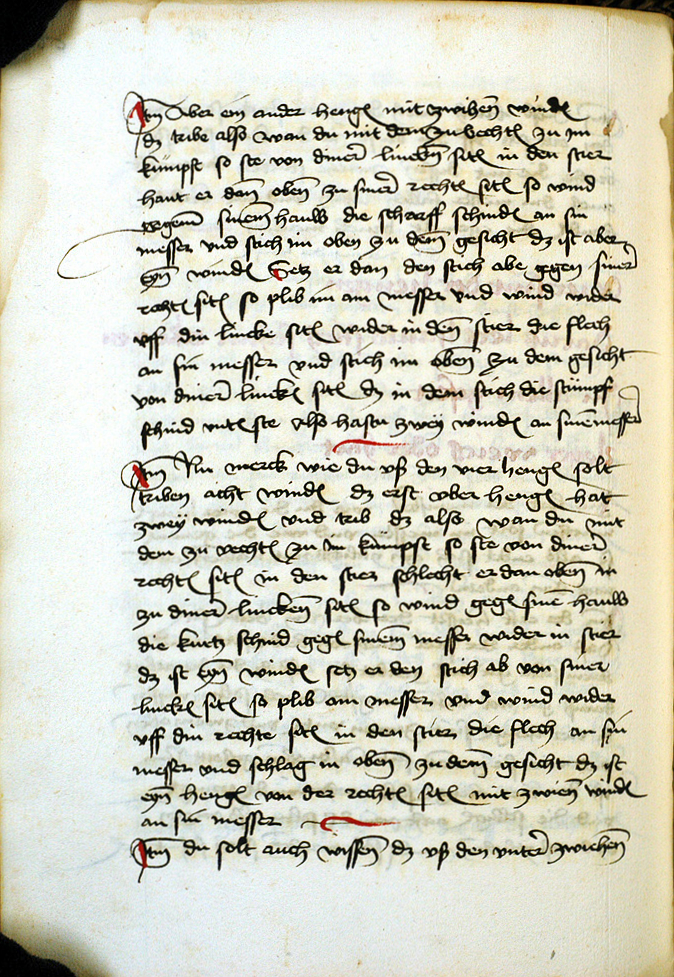 Itm Aber ein ander heng mit zwihen̄ wind
dz tribe also wan du mit dem zu vechtē zu im
kumpst so ste von diner̄ linckē sitē in den stier
haut er dan̄ oben̄ zu siner̄ rechtē sitē so wind
gegem̄ sinem̄ hauw die scharff schindē an sin
messer vnd stich im oben zu dem̄ gesicht dz ist aber
eȳn windē Setz er dan den stich abe gegen siner̄
rechtē sitē so plib im am messer vnd wind wider
vff din lincke sitē wider in den̄ stier die flech
an sin messer vnd stich im oben̄ zu dem gesicht
von diner̄ linckē sitē dz in dem stich die stumpf
schnid vntē ste Also hastu zwey windē an sinem messer
Itm Nu merck wie du vß den vier hengē solt
triben acht windē dz erst vber hengē hat
zwey windē vnd trib dz also wan du mit
dem zu vechtē zu im kumpst so ste von diner̄
rechtē sitē in den stier schlecht er dan oben̄ in
zu diner̄ lincken̄ sitē so wind gegē sinē hauw
die kurtz schnid gegē sinem̄ messer wider in stier
dz ist eȳn windē setz er den stich ab von siner
linckē sitē so plib am messer vnd wind wider
vff din rechte sitē in den stier die flech an sin
messer vnd schlag in oben̄ zu dem̄ gesicht dz ist
eyn̄ hengē von der rechtē sitē mit zwien̄ windē
an sin messer
Itm du solt auch wissen̄ dz vß den vnter̄ zwichen̄